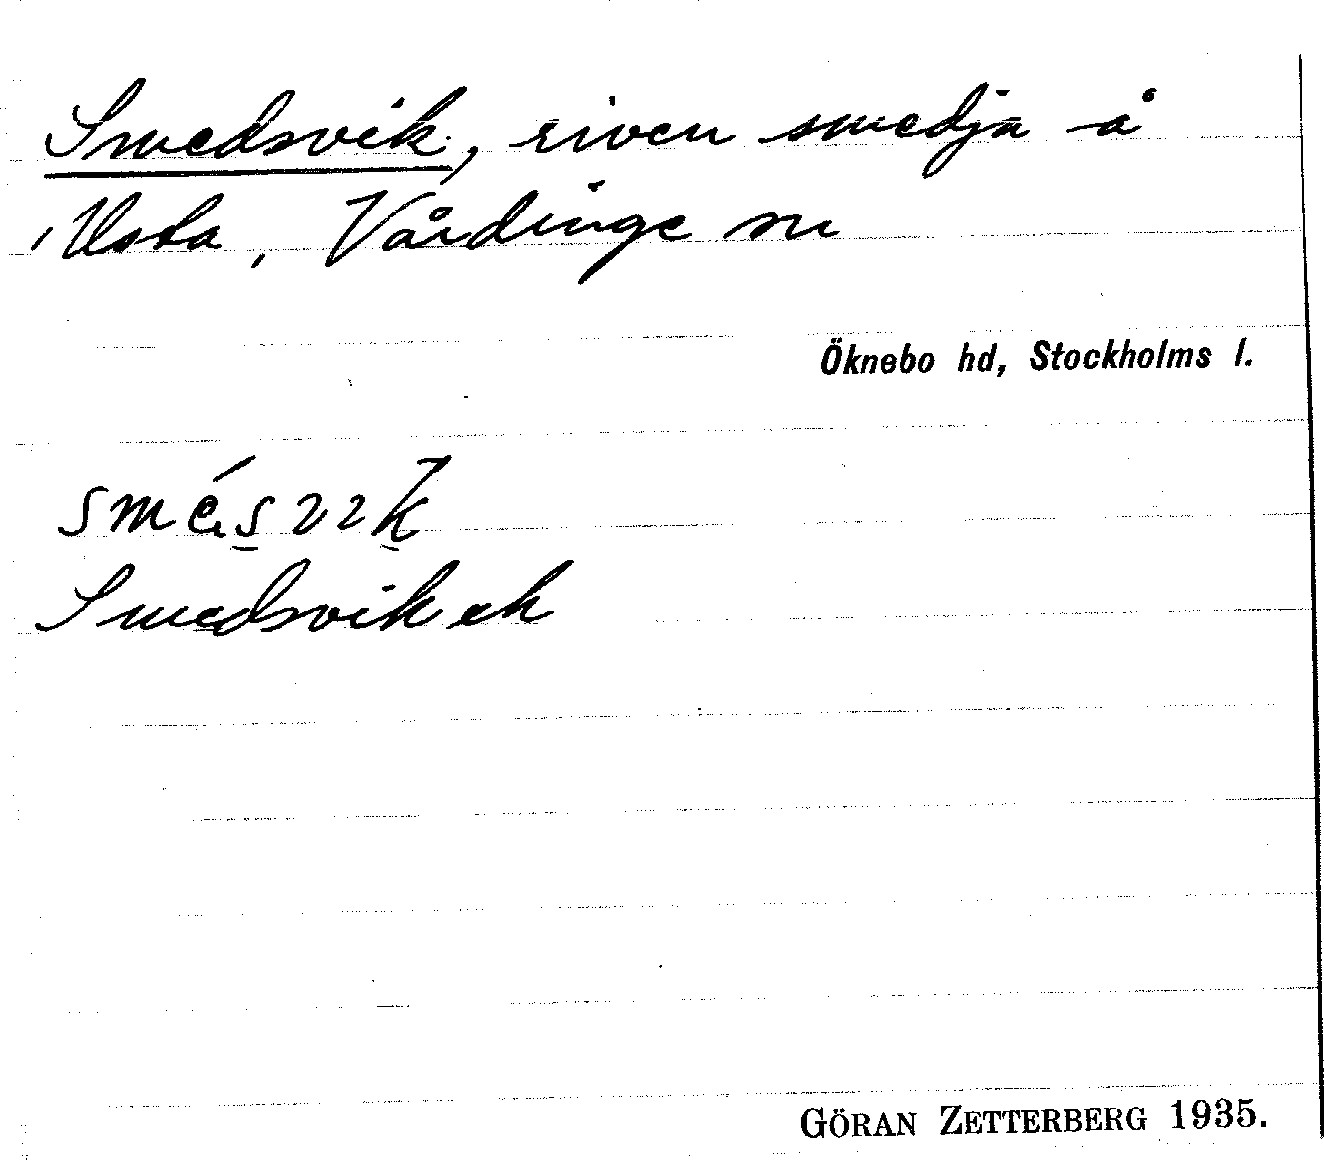 Smedsvik, riven smedja å
Usta, Vårdinge sn
Öknebo hd, Stockholms l.
Smedsvik ek
GÖRAN ZETTERBERG 1935.